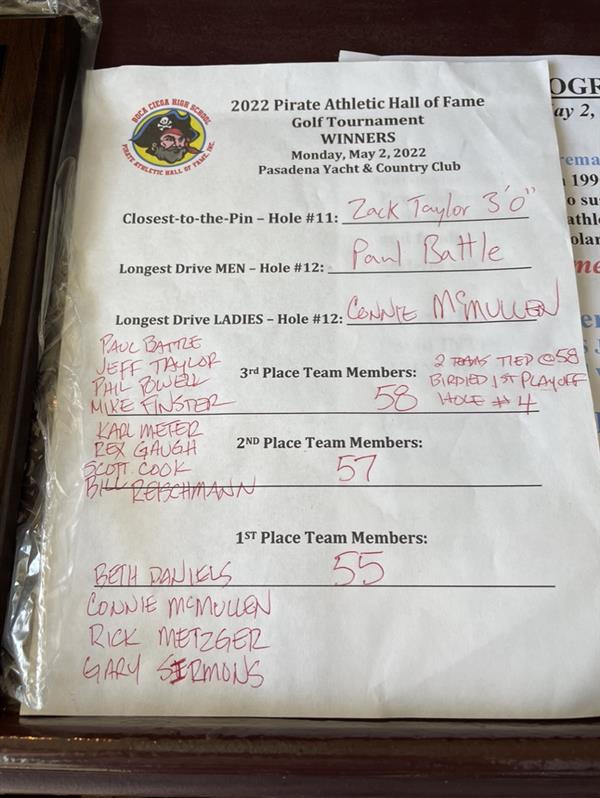 BOCA CIEGA HIGH SCHOOL
PIRATE ATHLETIC HALL OF FAME, INC.
2022 Pirate Athletic Hall of Fame
Golf Tournament
WINNERS
Monday, May 2, 2022
Pasadena Yacht & Country Club
Closest-to-the-Pin – Hole #11: Zack Taylor 3'0"
Longest Drive MEN – Hole #12: Paul Battle
Longest Drive LADIES – Hole #12: CONNIE McMULLEN
PAUL BATTLE
JEFF TAYLOR
PHIL
MIKE FINSTER
3rd Place Team Members:
58
2 TIED @ 58
BIRDIED 1ST PLAYOFF
HOLE # 4
KARL METER
REX GAUGH
SCOTT COOK
BILL REISCHMANN
2ND Place Team Members:
57
1ST Place Team Members:
55
BETH DANIELS
CONNIE McMULLEN
RICK METZGER
GARY SIRMONS
OGR
ay 2,
rema
199
o su
athl
olar
me